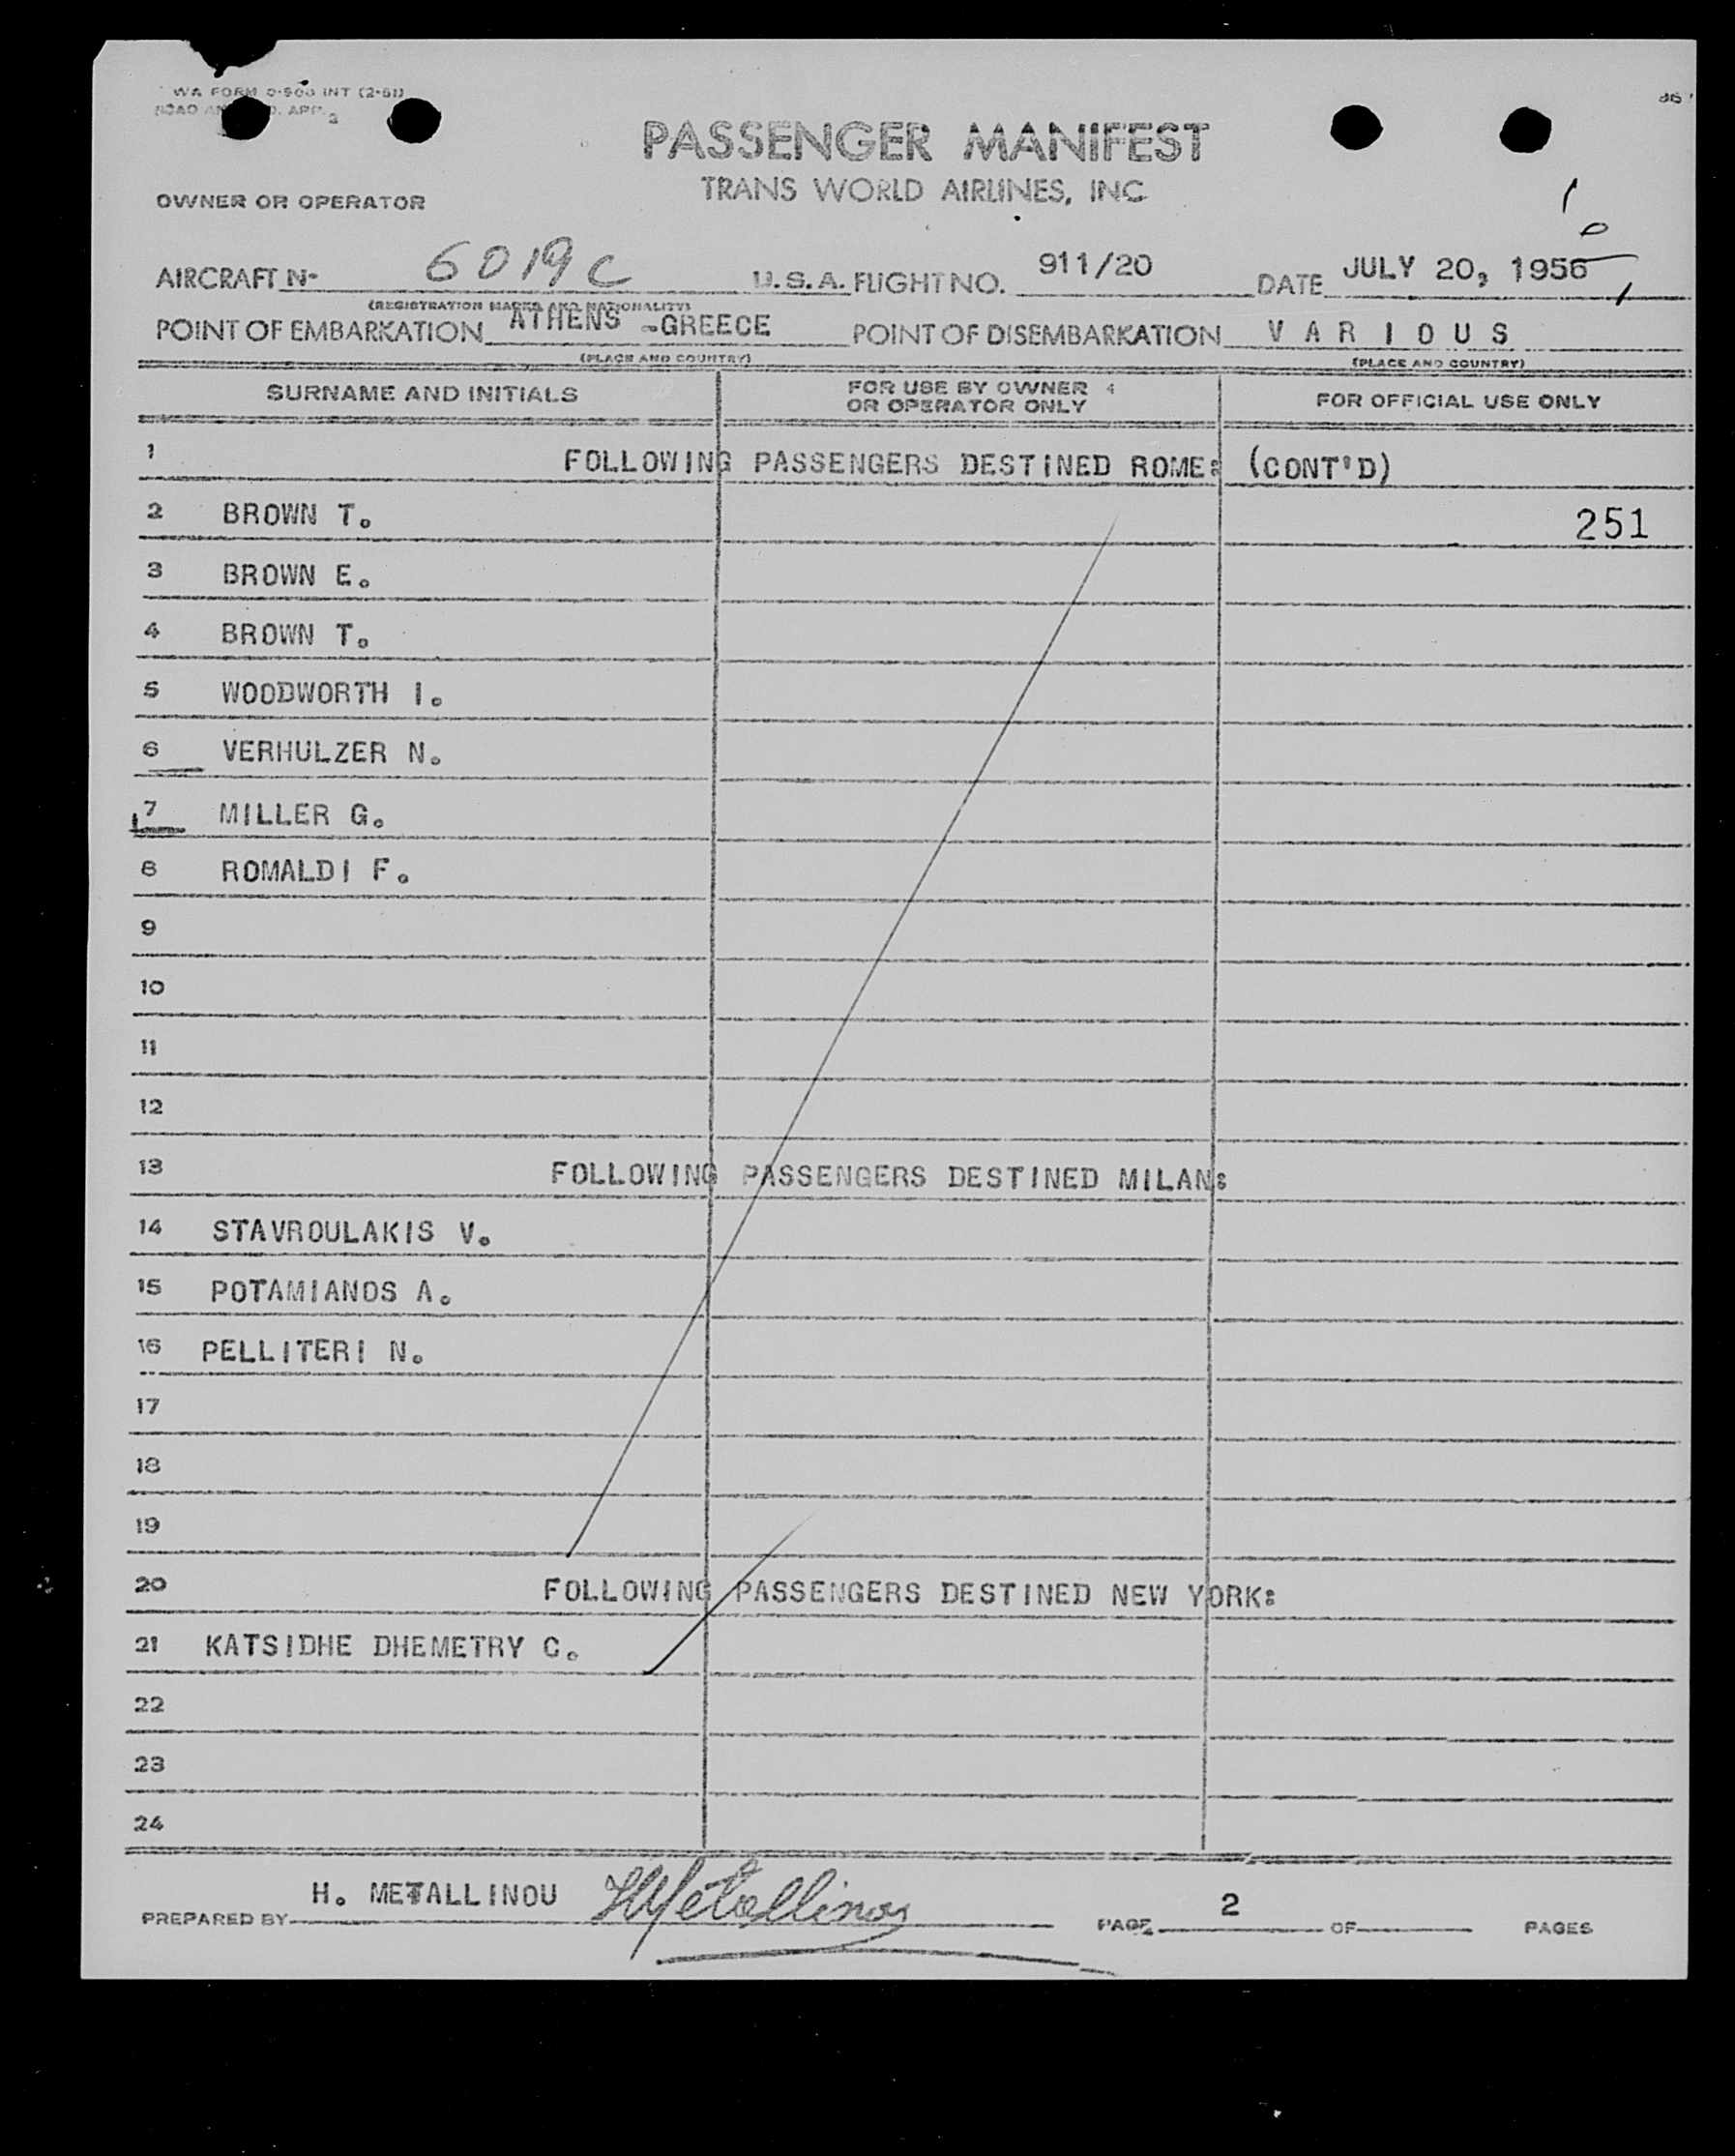 WA FORM 0-500 INT (2-51)
PASSENGER MANIFEST
TRANS WORLD AIRLINES, INC
OWNER OR OPERATOR
AIRCRAFT N- 6019C U.S.A. FLIGHT NO. 911/20 DATE JULY 20, 1956
(REGISTRATION MARKS AND NATIONALITY)
POINT OF EMBARKATION ATHENS -GREECE POINT OF DISEMBARKATION V A R I O U S
(PLACE AND COUNTRY) (PLACE AND COUNTRY)
SURNAME AND INITIALS FOR USE BY OWNER OR OPERATOR ONLY FOR OFFICIAL USE ONLY
1 FOLLOWING PASSENGERS DESTINED ROME: (CONT'D)
2 BROWN T. 251
3 BROWN E.
4 BROWN T.
5 WOODWORTH I.
6 VERHULZER N.
7 MILLER G.
8 ROMALDI F.
9
10
11
12
13 FOLLOWING PASSENGERS DESTINED MILAN:
14 STAVROULAKIS V.
15 POTAMIANOS A.
16 PELLITERI N.
17
18
19
20 FOLLOWING PASSENGERS DESTINED NEW YORK:
21 KATSIDHE DHEMETRY C.
22
23
24
PREPARED BY H. METALLINOU HMetallinou PAGE 2 OF PAGES